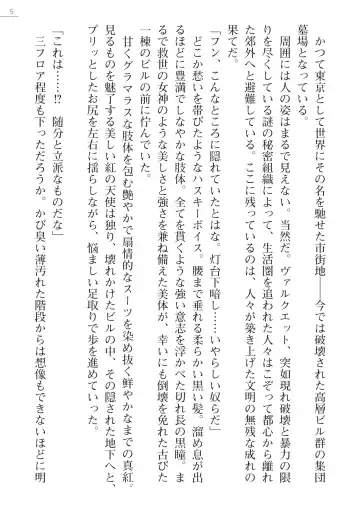 5
かつて東京として世界にその名を馳せた市街地――今では破壊された高層ビル群の集団
墓場となっている。
周囲には人の姿はまるで見えない。当然だ。ヴァルクエット、突如現れ破壊と暴力の限
りを尽くしている謎の秘密組織によって、生活圏を追われた人々はこぞって都心から離れ
た郊外へと避難している。ここに残っているのは、人々が築き上げた文明の無残な成れの
果てだ。
「フン、こんなところに隠れていたとはな。灯台下暗し……いやらしい奴らだ」
どこか愁いを帯びたようなハスキーボイス。腰まで垂れる柔らかい黒い髪。溜め息が出
るほどに豊満でしなやかな肢体。全てを貫くような強い意志を浮かべた切れ長の黒瞳。ま
るで救世の女神のような美しさと強さを兼ね備えた美体が、幸いにも倒壊を免れた古びた
一棟のビルの前に佇んでいた。
甘くグラマラスな肢体を包む艶やかで扇情的なスーツを染め抜く鮮やかなまでの真紅。
見るものを魅了する美しい紅の天使は独り、壊れかけたビルの中、その隠された地下へと、
プリッとしたお尻を左右に揺らしながら、悩ましい足取りで歩を進めていった。
「これは……!?　随分と立派なものだな」
三フロア程度も下っただろうか。かび臭い薄汚れた階段からは想像もできないほどに明